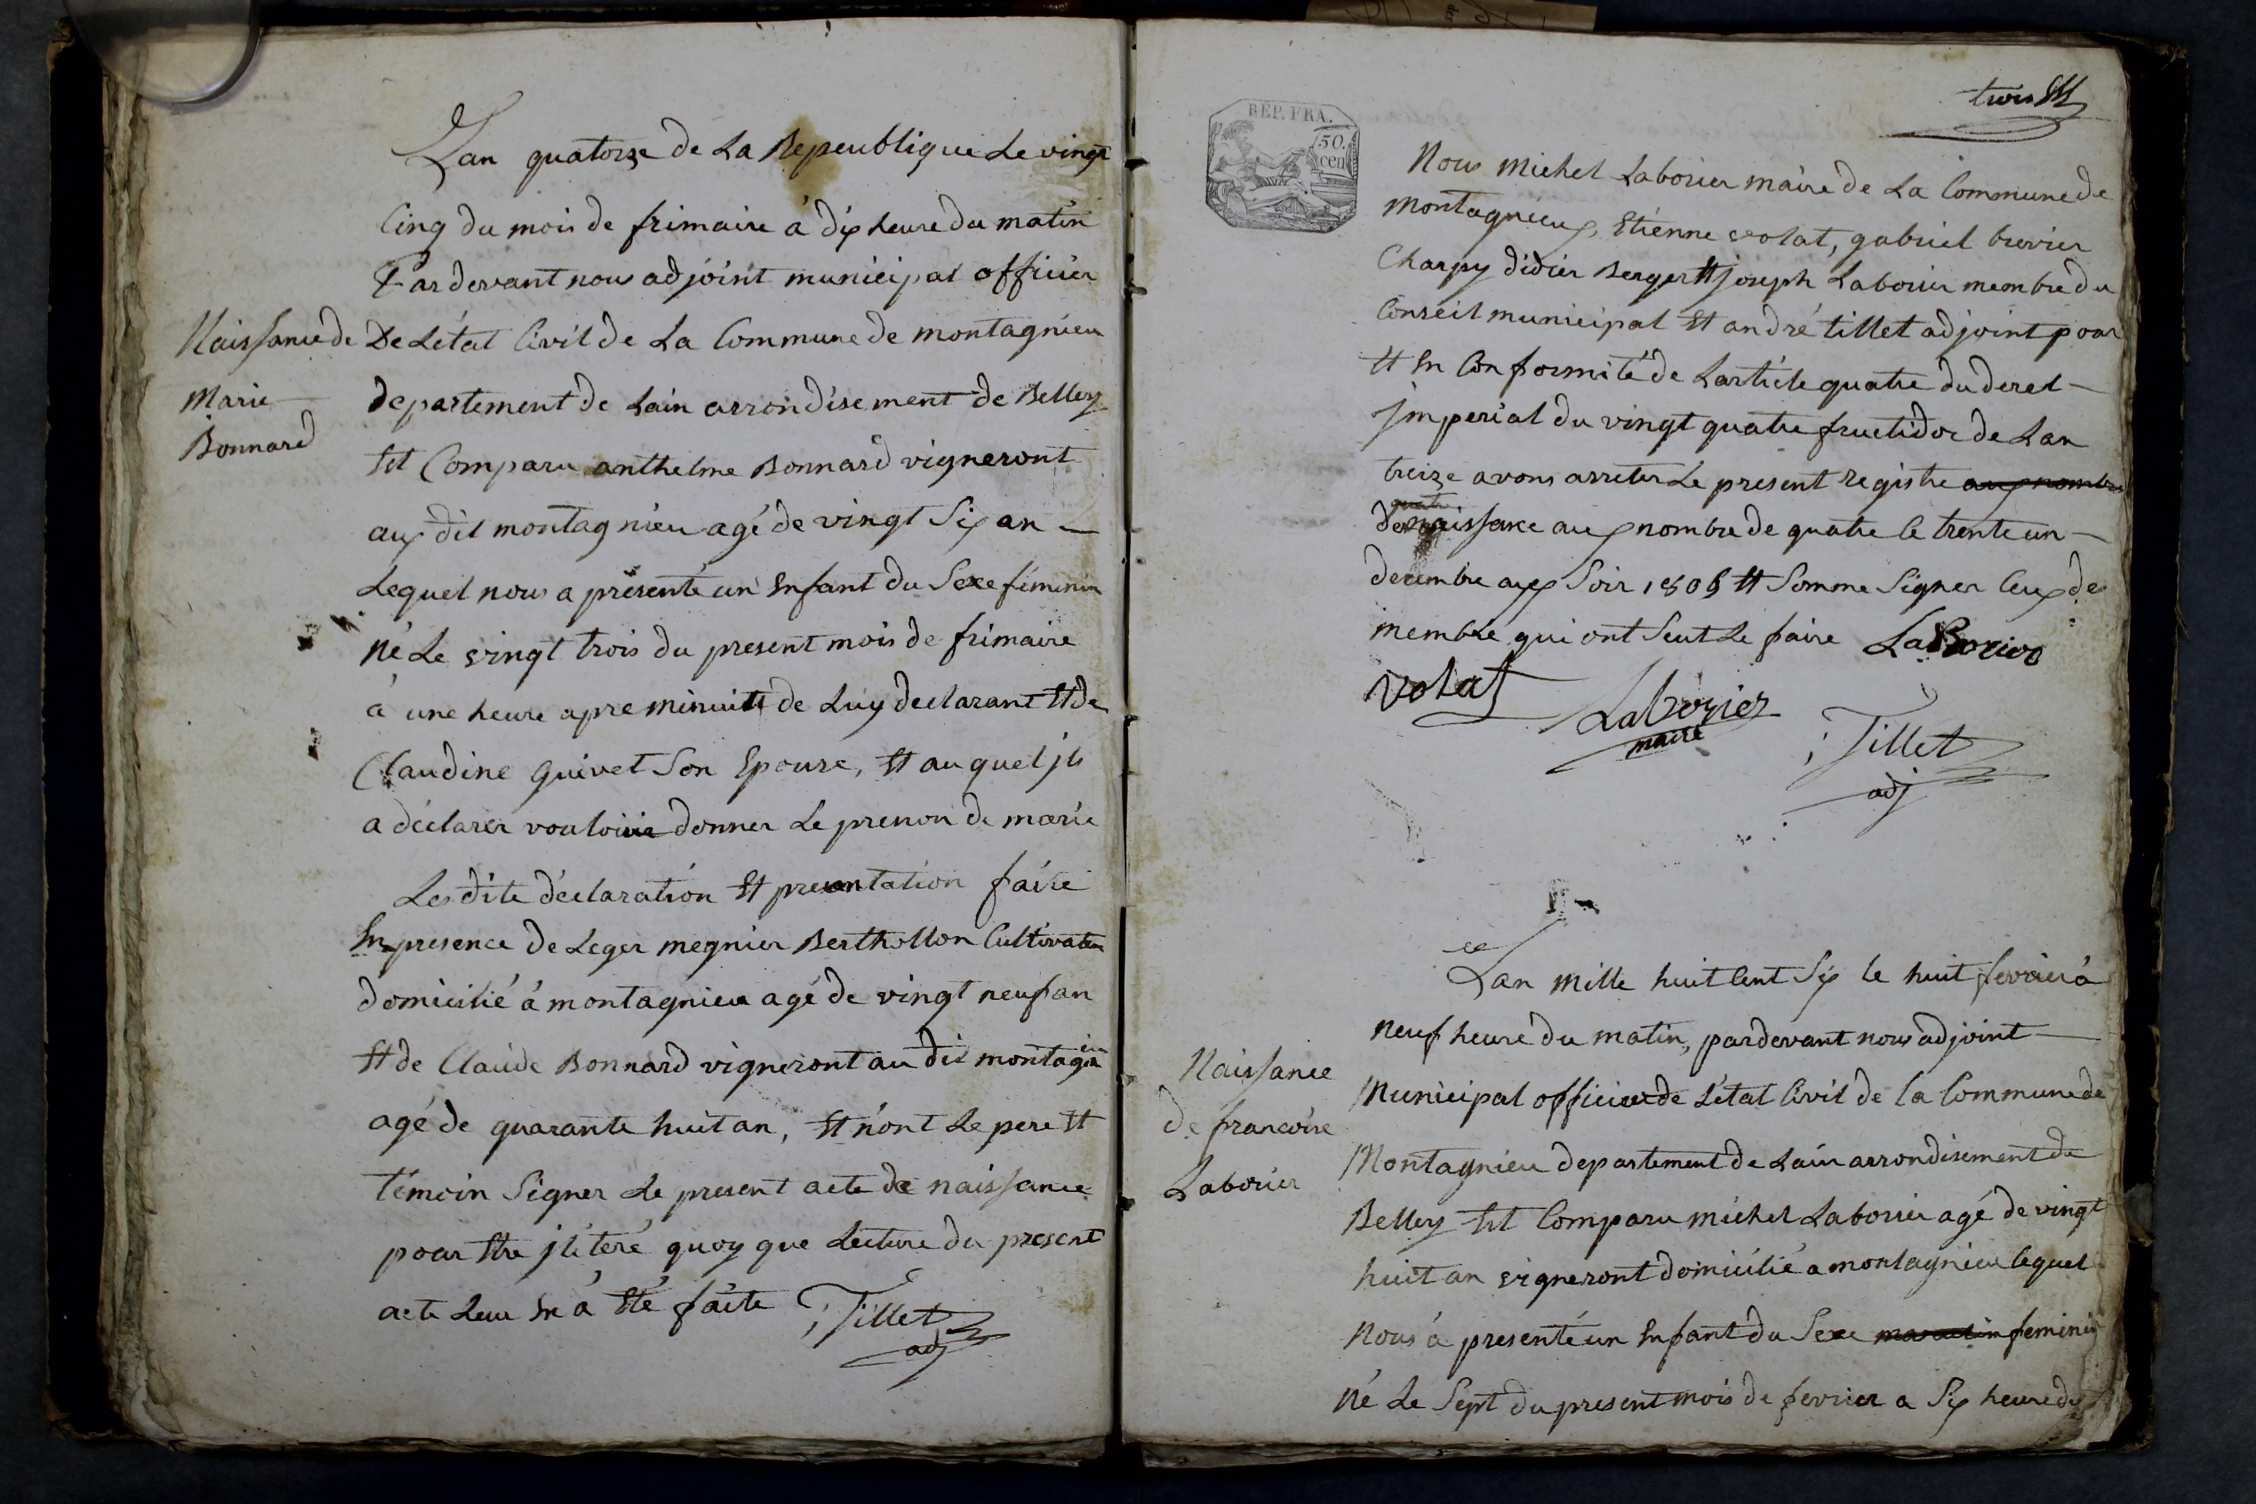 Naissance de
Marie
Bonnard
Lan quatorze de La Repeublique Le vingt
Cinq du mois de frimaire à dix heure du matin
Pardevant nous adjoint municipal officier
De Létat Civil de La Commune de montagnieu
departement de Lain arrondisement de Belley
Est Comparu anthelme Bonnard vigneront
aux dit montagnieu agé de vingt Six an
Lequel nous a présenté un Enfant du Sexe féminin
né Le vingt trois du present mois de frimaire
à une heure apre minuit de Luy declarant Et de
Claudine Guivet Son Epouse, Et au quel jl
a déclarer vouloir donner Le prenon de marie
Les dite déclaration Et presentation faite
En presence de Leger megnier Berthollon Cultivateur
domicilié à montagnieu agé de vingt neuf an
Et de Claude Bonnard vigneront au dit montagnieu
agé de quarante huit an, Et n'ont Le pere Et
témoin Signer Le present acte de naissance
pour Etre jlitéré quoy que Lecture du present
acte Leur En à Eté faite Tillet
adj
trois
REP. FRA.
50.
cen
Nous Michel Laborier maire de La Commune de
Montagnieux, Etienne volat, gabriel brevier
Charpy didier Berger Et joseph Laborier membre du
Conseil municipal Et andré tillet adjoint pour
Et En Conformité de Larticle quatre du decret
jmperial du vingt quatre fructidor de Lan
treize avons arreter Le present registre aux nombre
de naissance aux nombre de quatre le trente un
decembre aux Soir 1805 Et Somme Signer Ceux de
membre qui ont Seut Le faire LaBorier
Volat
Laborier
maire
Tillet
adj
Naissance
de francoise
Laborier
Lan Mille huit Cent Six le huit fevrier à
neuf heure du matin, pardevant nous adjoint
Municipal officier de Létat Civil de la Commune de
Montagnieu departement de Lain arrondisement de
Belley Est Comparu michel Laborier agé de vingt
huit an vigneront domicilié a montagnieu lequel
Nous à presenté un Enfant du Sexe masculin feminin
Né Le Sept du present mois de fevrier a Six heure du